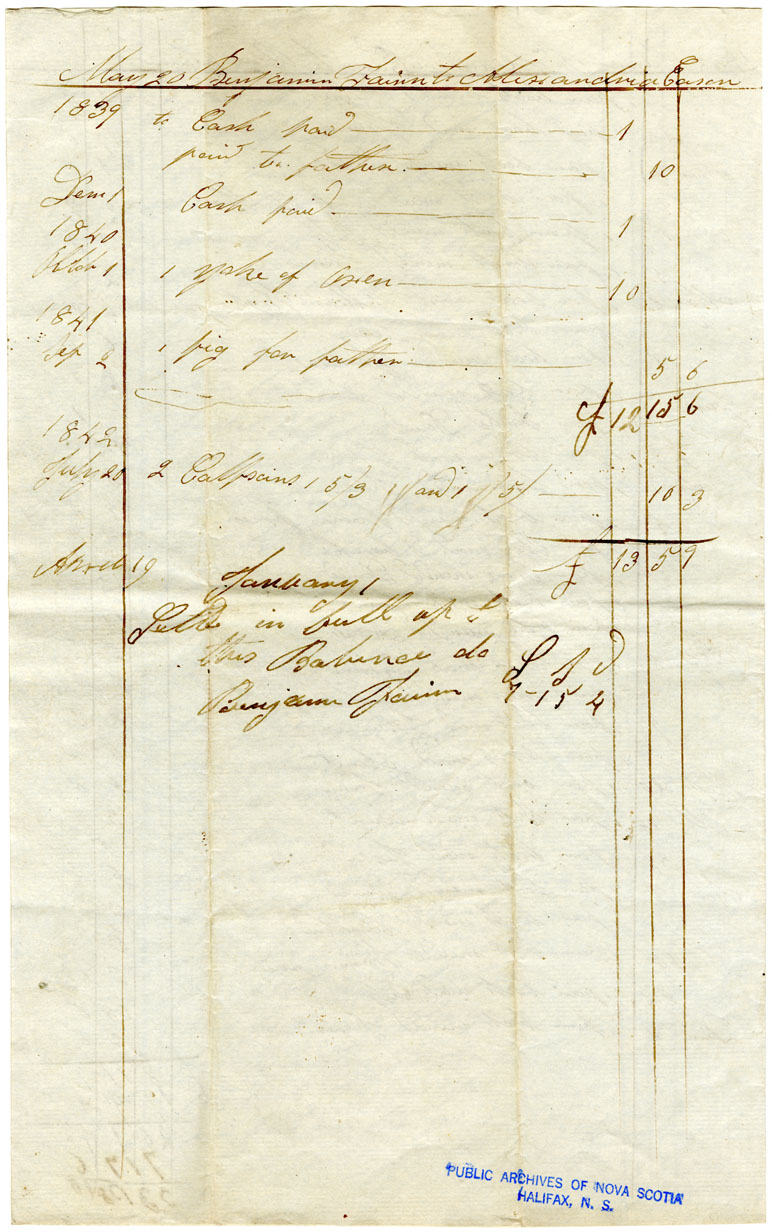 May 20 Benjamin to Alexandria Eason
1839 to Cash paid 1
paid to father 10
1 Cash paid 1
1840
1 1 yoke of oxen 10
1841
Sep 2 1 pig for father 5 6
£ 12 15 6
1842
July 20 2 1 5/3 and 1 5/ 10 3
£ 13 5 9
19 January 1
in full up to
this Balance do £ S D
Benjamin 7-15 4
PUBLIC ARCHIVES OF NOVA SCOTIA
HALIFAX, N. S.